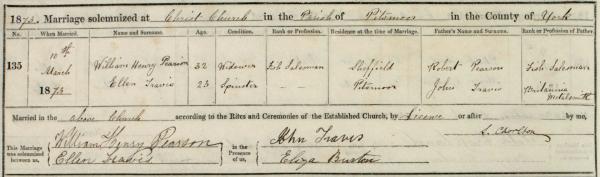 1873. Marriage solemnized at Christ Church in the Parish of Pitsmoor in the County of York
No. When Married. Name and Surname. Age. Condition. Rank or Profession. Residence at the time of Marriage. Father's Name and Surname. Rank or Profession of Father.
135 10th March 1873 William Henry Pearson 32 Widower Fish Salesman Sheffield Robert Pearson Fish Salesman
Ellen Travis 23 Spinster — Pitsmoor John Travis Britannia Metalsmith
Married in the above Church according to the Rites and Ceremonies of the Established Church, by Licence or after by me,
This Marriage was solemnized between us, William Henry Pearson Ellen Travis in the Presence of us, John Travis Eliza Burton